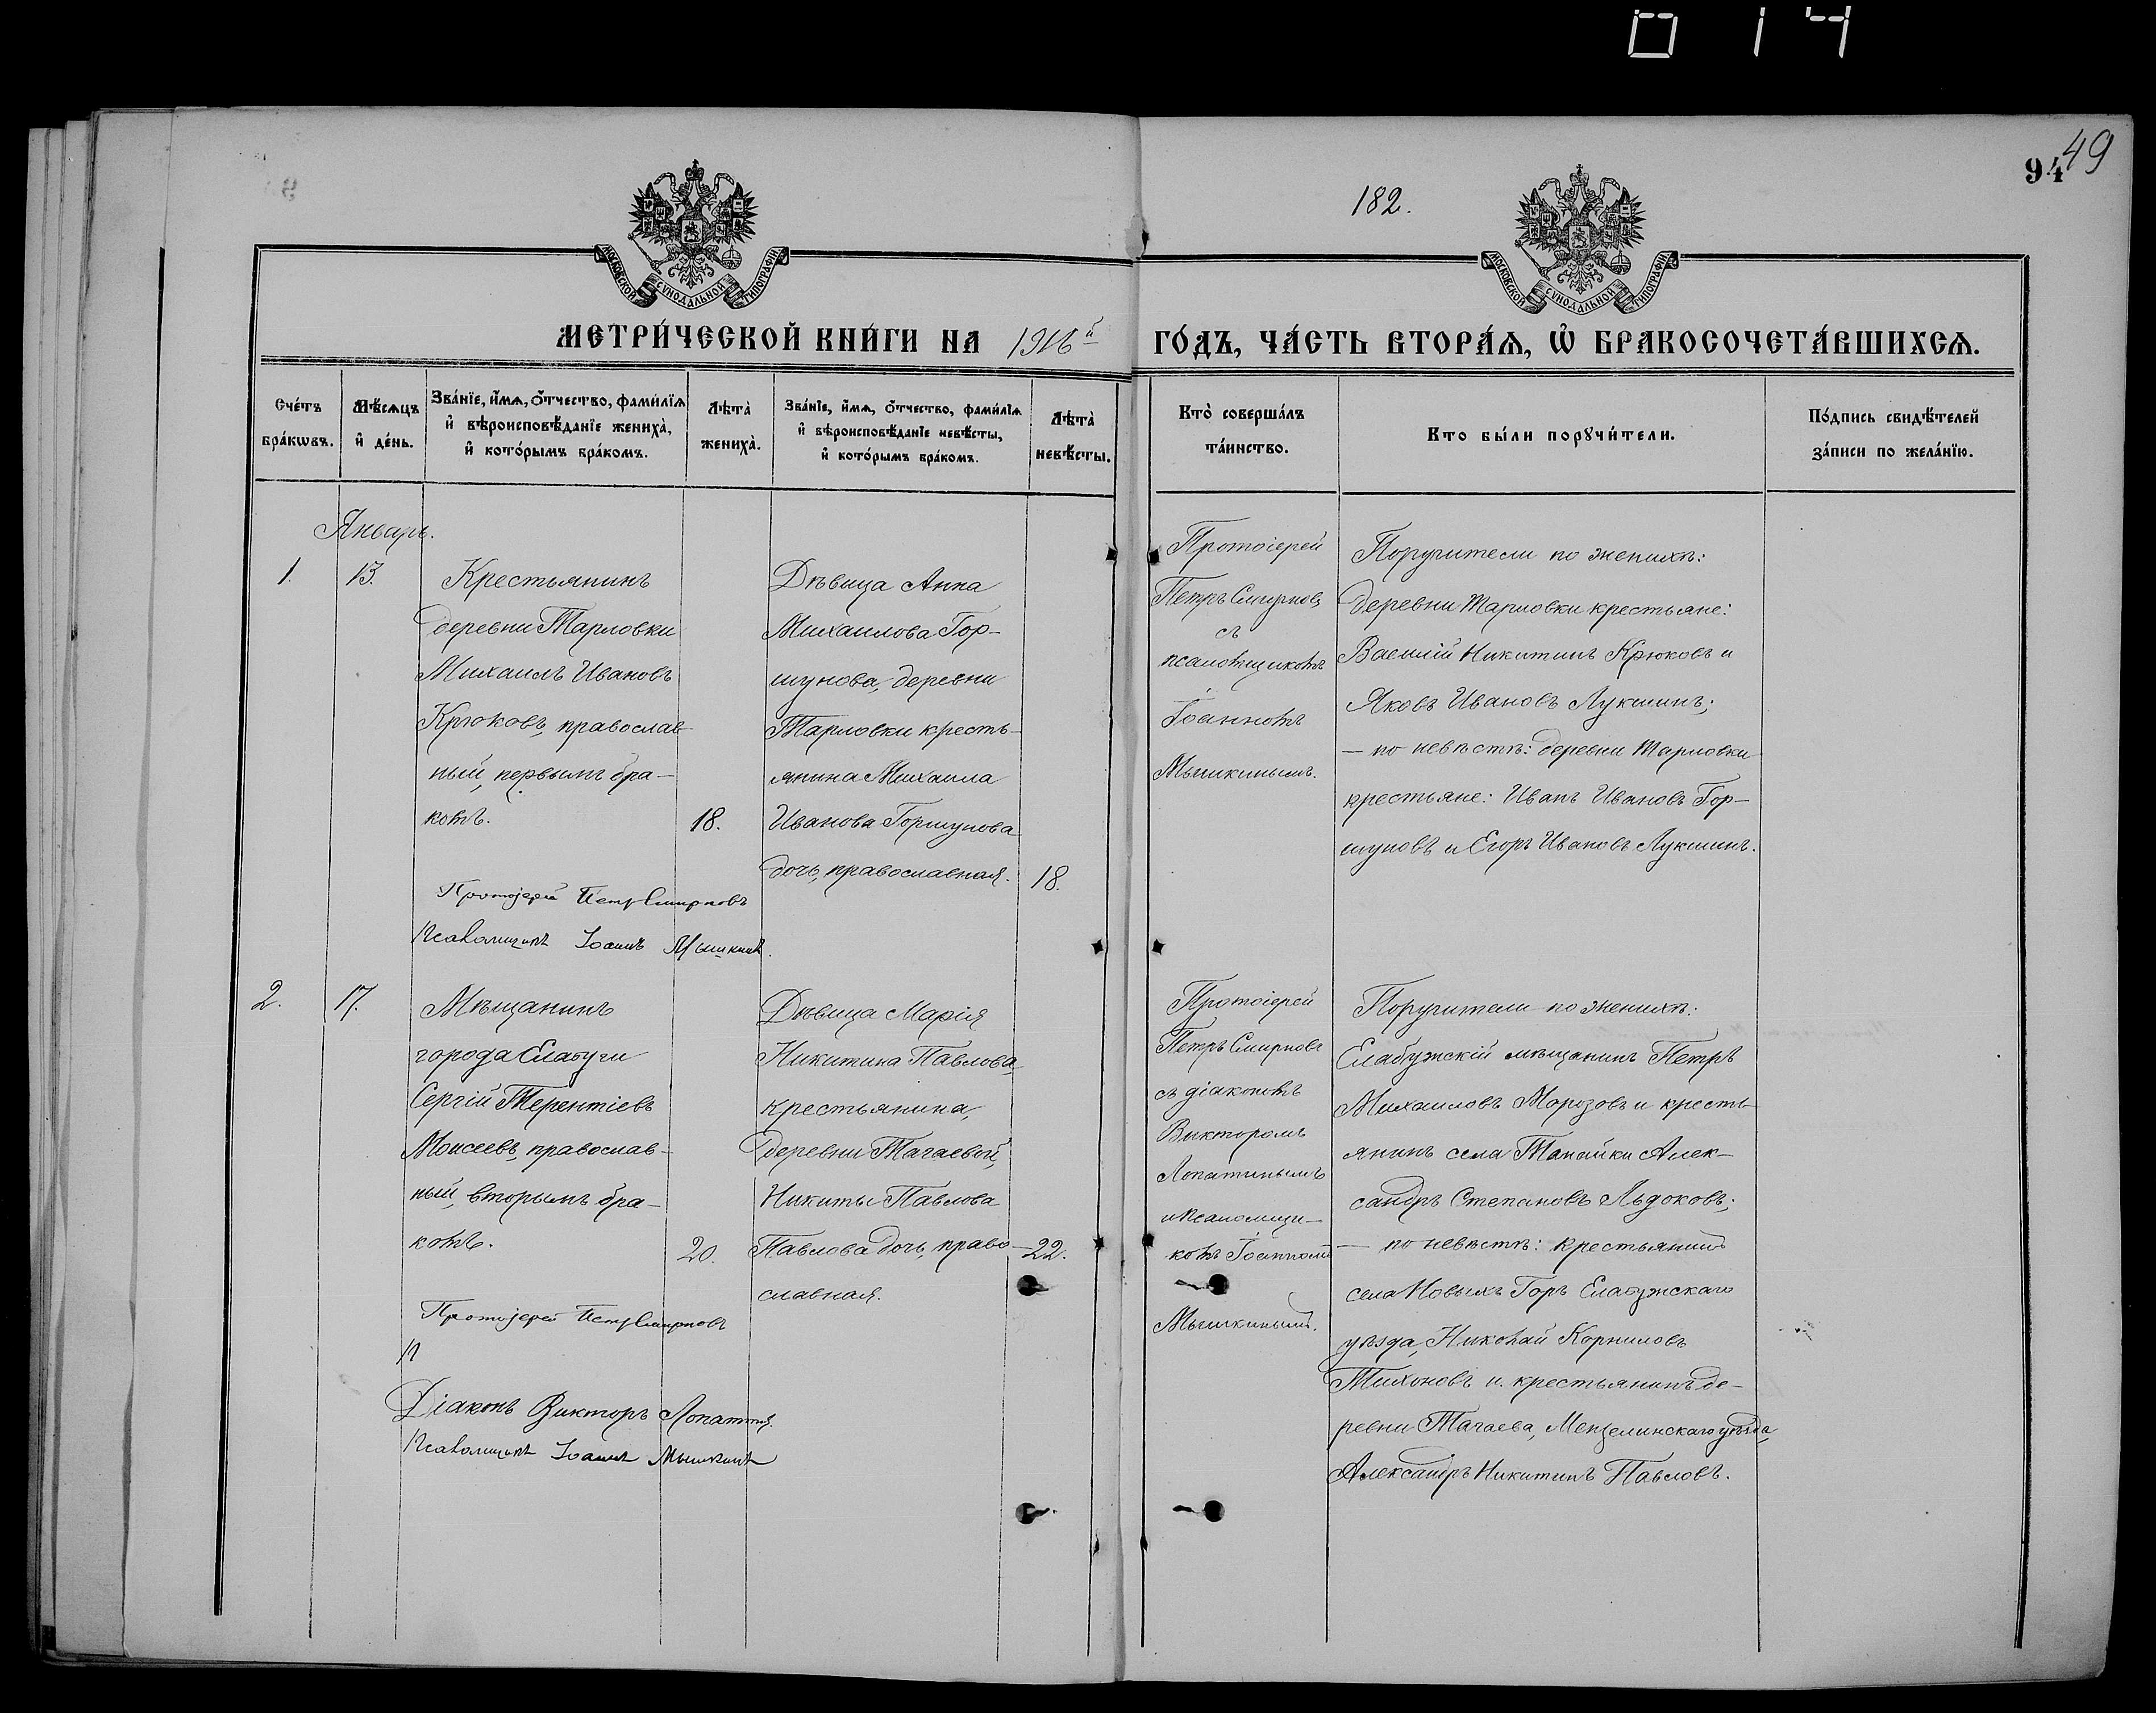 014
94
49
182.
МОСКОВСКОЙ СѴНОДАЛЬНОЙ ТИПОГРАФІИ
МОСКОВСКОЙ СѴНОДАЛЬНОЙ ТИПОГРАФІИ
МЕТРИ́ЧЕСКОЙ КНИ́ГИ НА 1916й ГО́ДЪ, ЧА́СТЬ ВТОРА́Ѧ, Ѽ БРАКОСОЧЕТА́ВШИХСѦ.
Сче́тъ бра́кѡвъ.
Мѣ́сѧцъ и҆ де́нь.
Зва́нїе, и҆́мѧ, ѻ҆́тчество, фами́лїѧ и҆ вѣроисповѣ́данїе жениха̀, и҆ кото́рымъ бра́комъ.
Лѣ́та жениха̀.
Зва́нїе, и҆́мѧ, ѻ҆́тчество, фами́лїѧ и҆ вѣроисповѣ́данїе невѣ́сты, и҆ кото́рымъ бра́комъ.
Лѣ́та невѣ́сты.
Кто̀ соверша́лъ та́инство.
Кто бы́ли порꙋчи́тели.
По́дпись свидѣ́телей за́писи по жела́нїю.
Январь.
1.
13.
Крестьянинъ
деревни Тарловки
Михаилъ Ивановъ
Крюковъ, православ-
ный, первымъ бра-
комъ.
18.
Дѣвица Анна
Михаилова Гор-
шунова, деревни
Тарловки кресть-
янина Михаила
Иванова Горшунова
дочь, православная.
18.
Протоіерей
Петръ Смирновъ
съ
псаломщикомъ
Іоанномъ
Мышкинымъ.
Поручители по женихѣ:
деревни Тарловки крестьяне:
Василій Никитинъ Крюковъ и
Яковъ Ивановъ Лукшинъ;
— по невѣстѣ: деревни Тарловки
крестьяне: Иванъ Ивановъ Гор-
шуновъ и Егоръ Ивановъ Лукшинъ.
Протоіерей Петръ Смирновъ
Псаломщикъ Іоаннъ Мышкинъ.
2.
17.
Мѣщанинъ
города Елабуги
Сергій Терентіевъ
Моисеевъ, православ-
ный, вторымъ бра-
комъ.
20.
Дѣвица Марія
Никитина Павлова,
крестьянина,
деревни Тагаевой,
Никиты Павлова
Павлова дочь, право-
славная.
22.
Протоіерей
Петръ Смирновъ
съ діакономъ
Викторомъ
Лопатинымъ
и псаломщи-
комъ Іоанномъ
Мышкинымъ.
Поручители по женихѣ:
Елабужскій мѣщанинъ Петръ
Михаиловъ Морозовъ и кресть-
янинъ села Танайки Алек-
сандръ Степановъ Льдоковъ;
— по невѣстѣ: крестьянинъ
села Новыхъ Горъ Елабужскаго
уѣзда, Николай Корниловъ
Тихоновъ и крестьянинъ де-
ревни Тагаева, Мензелинскаго уѣзда,
Александръ Никитинъ Павловъ.
Протоіерей Петръ Смирновъ
Діаконъ Викторъ Лопатинъ.
Псаломщикъ Іоаннъ Мышкинъ